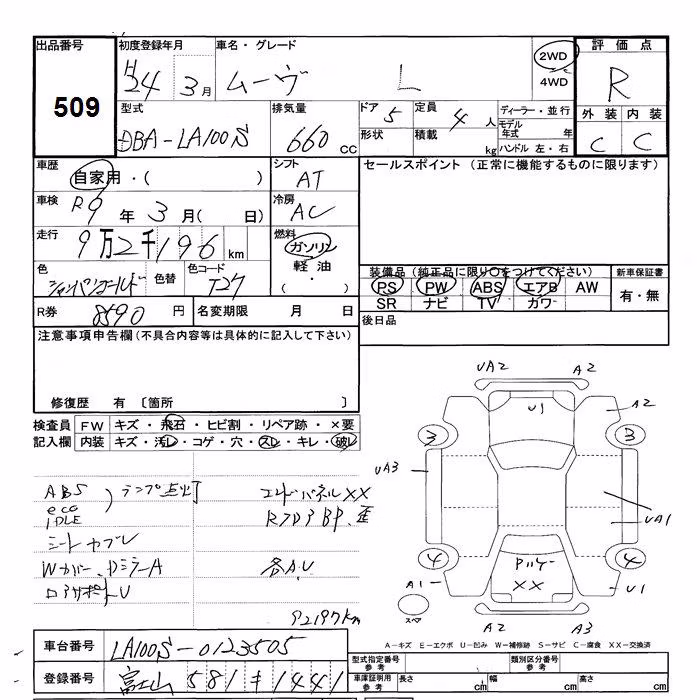 出品番号 初度登録年月 車名・グレード 2WD 4WD 評価点
509 H24 3月 ムーヴ L R
型式 排気量 ドア 5 定員 4人 ディーラー・並行 外装 内装
DBA-LA100S 660cc 形状 積載 kg モデル年式 年 C C
ハンドル 左・右
車歴 シフト セールスポイント (正常に機能するものに限ります)
自家用・( ) AT
車検 R9年3月( 日) 冷房 AC
走行 9万2千196km 燃料 ガソリン 軽油 ・ ( )
色 シャンパンゴールド 色替 色コード T27
装備品 (純正品に限り○をつけてください) 新車保証書
PS PW ABS エアB AW 有・無
SR ナビ TV カワ
R券 8590円 名変期限 月 日 後日品
注意事項申告欄 (不具合内容等は具体的に記入して下さい)
修復歴 有 〔箇所 〕
検査員 FW キズ・飛石・ヒビ割・リペア跡・×要
記入欄 内装 キズ・汚レ・コゲ・穴・スレ・キレ・破レ
UA2 A2
U1 A2
3 3
UA3 UA1
ABS ランプ点灯 エンドパネルXX
eco IDLE
シートカブレ
Wカバー、DミラーA 各A.U
ロアサポートU
92197km
バックドアー XX
4 4
A1 U1
スペア A2 A3
A-キズ E-エクボ U-凹み W-補修跡 S-サビ C-腐食 XX-交換済
車台番号 LA100S-0123505
型式指定番号 参考 類別区分番号 参考
登録番号 富士山 581 キ 1441
車庫証明用 参考 長さ cm 幅 cm 高さ cm